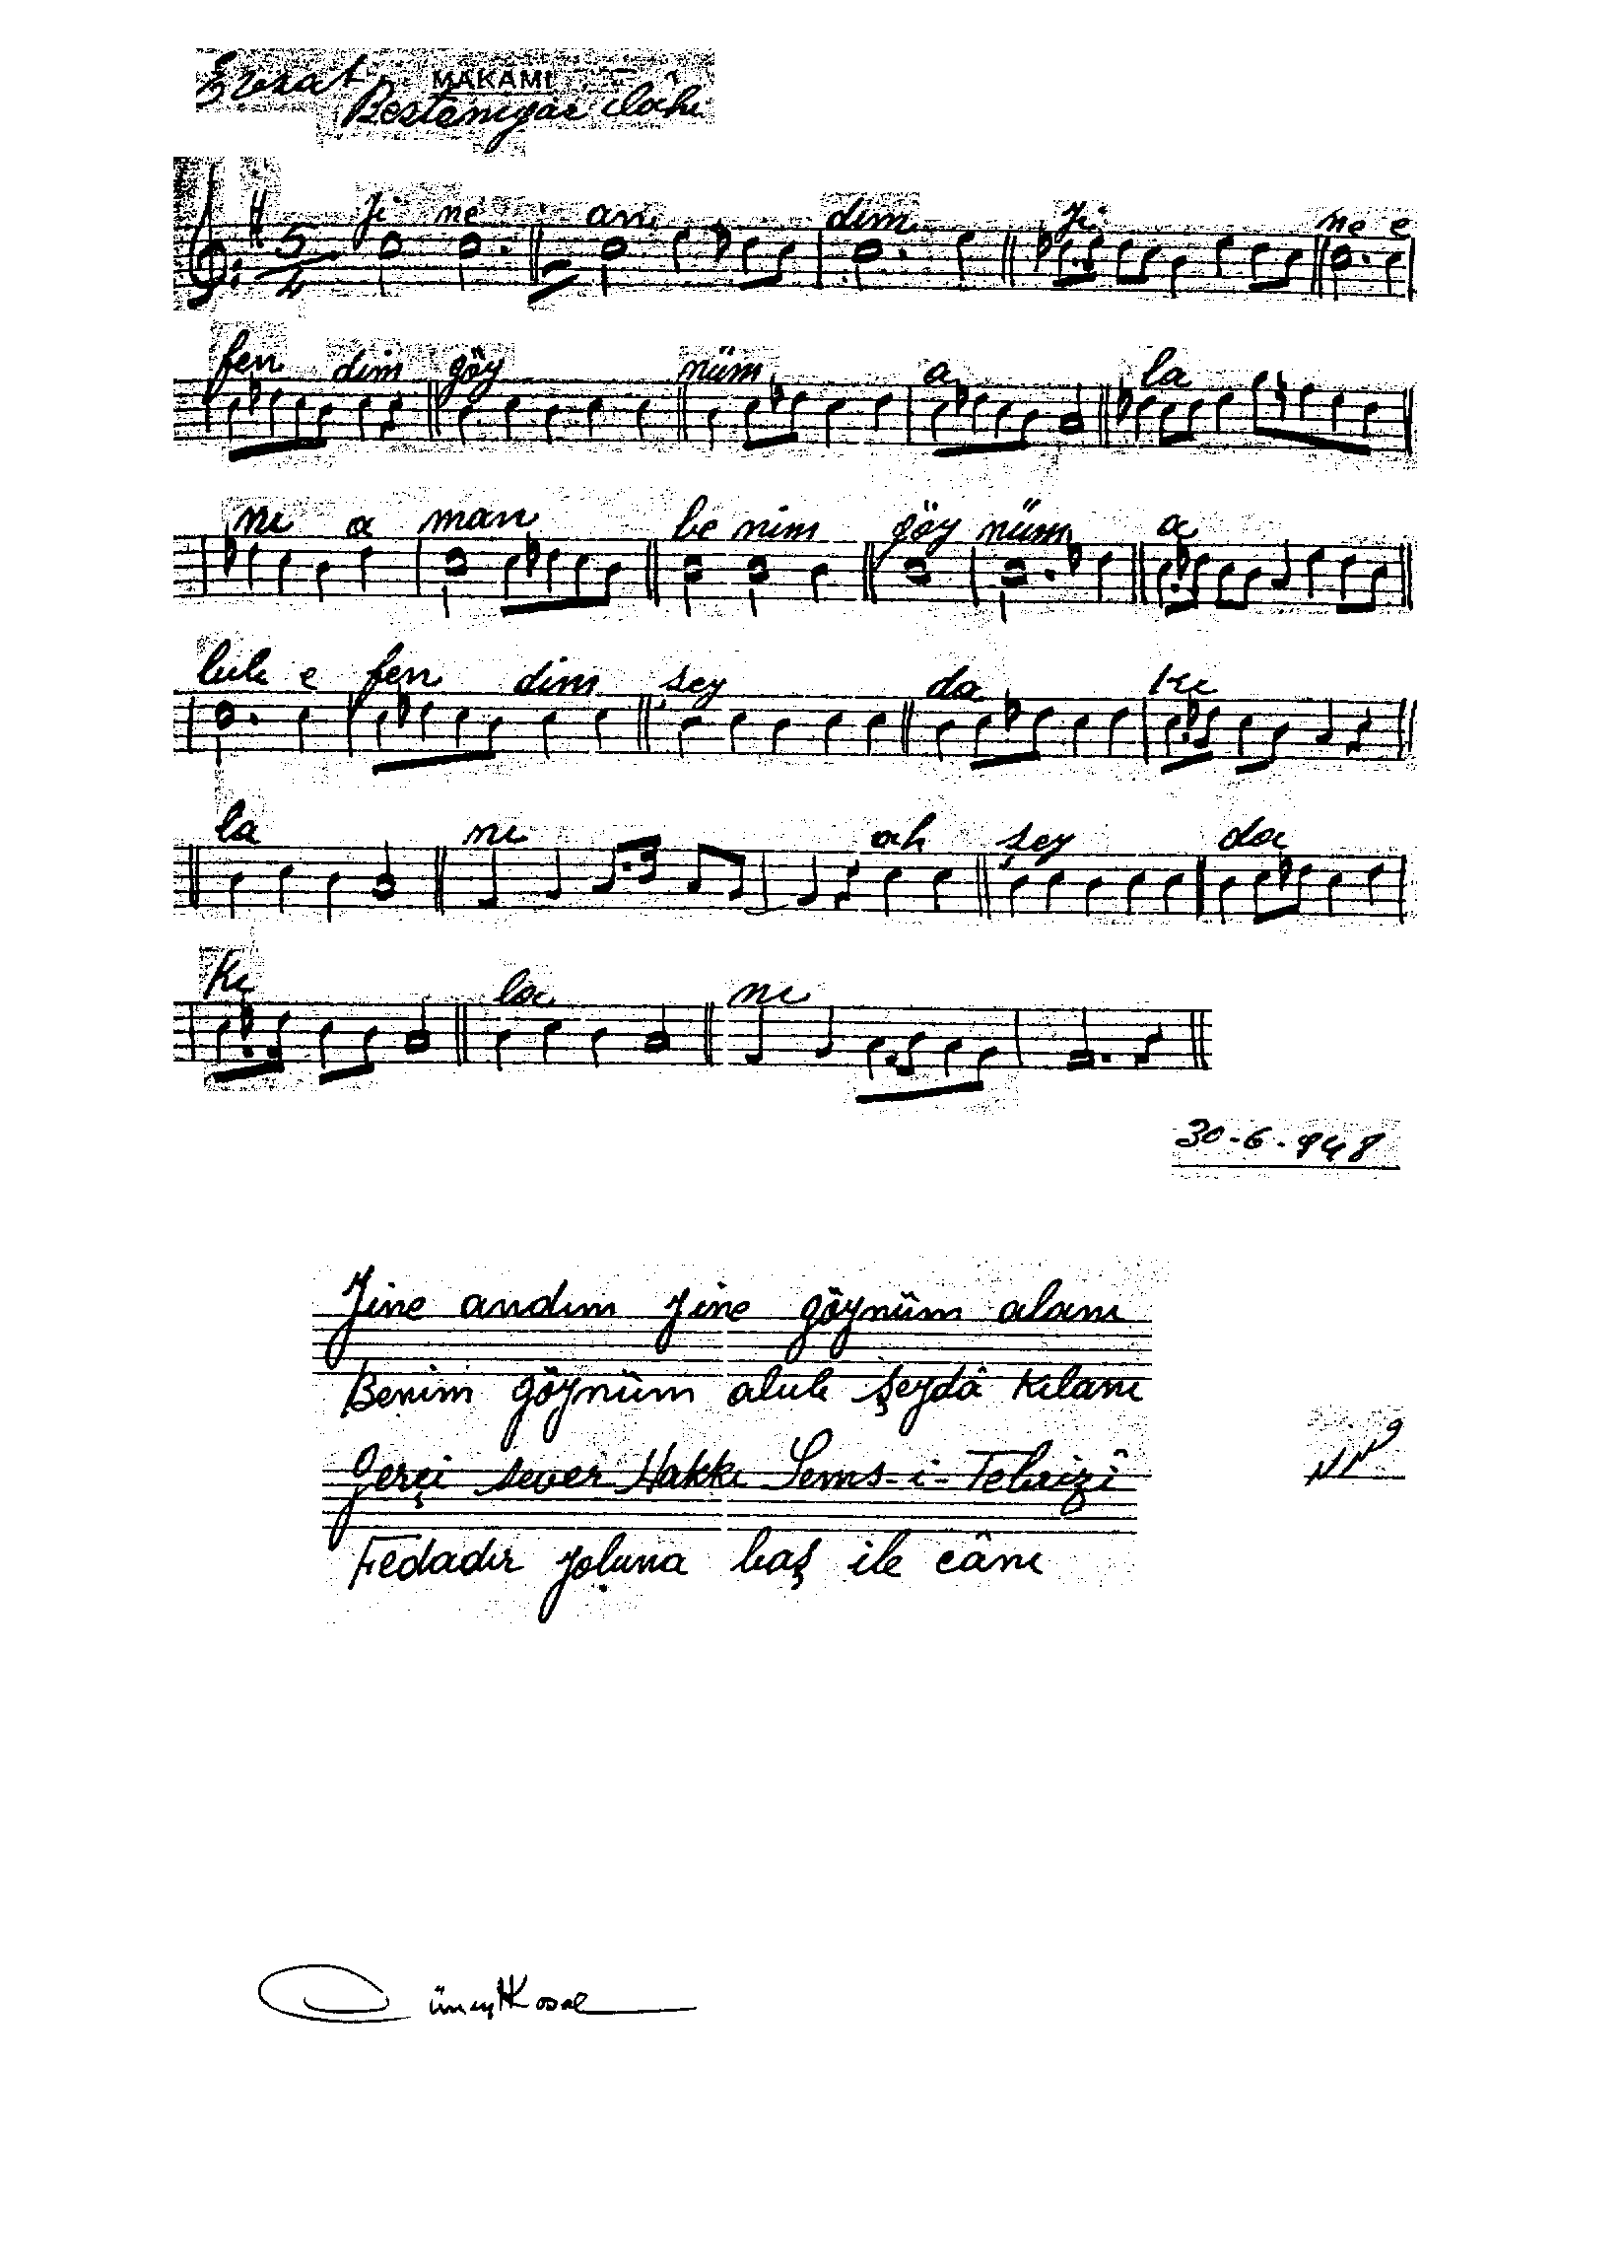 MAKAMI
Bestenigâr ilâhi
5/4
Yi ne an dım Yi ne e
fen dim göy nüm a la
nı a man be nim göy nüm a
lub e fen dim şey da kı
la nı ah şey da
kı la nı
30-6-948
Yine andım Yine göynüm alanı
Benim göynüm alub şeydâ kılanı
Gerçi sever Hakkı Şems-i-Tebrizî
Fedadır yoluna baş ile cânı
Cüneyt Kosal